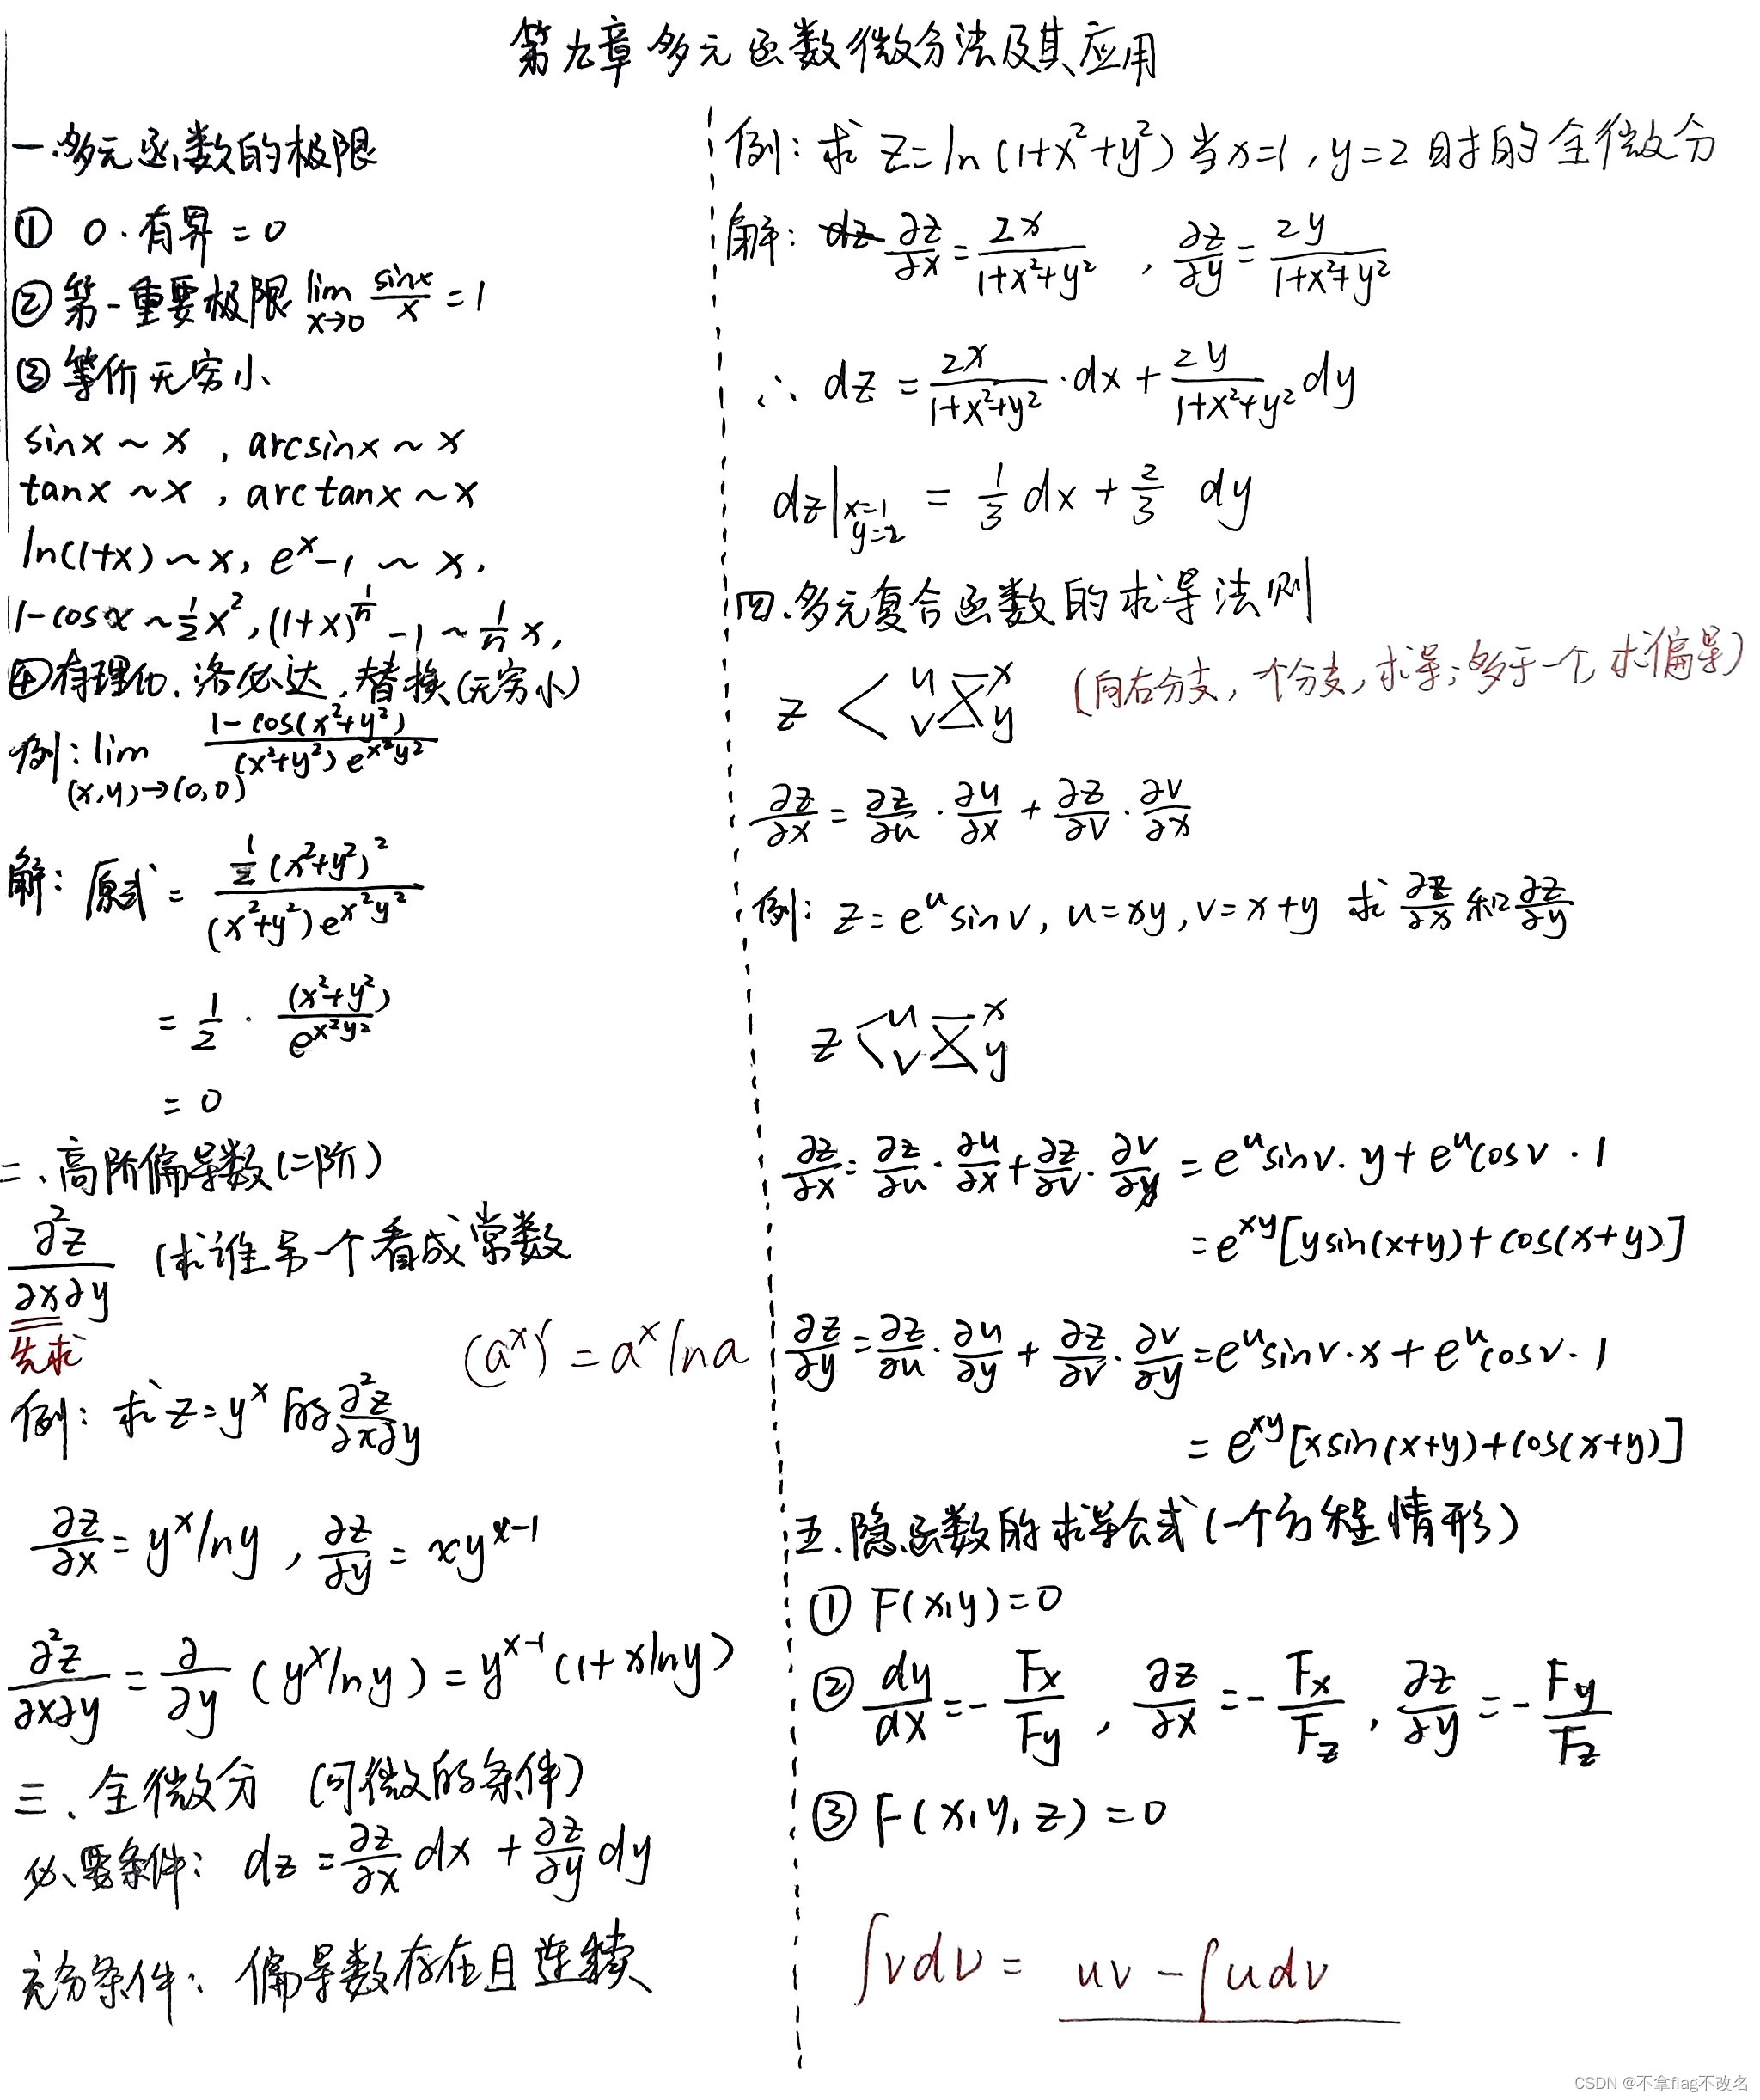 第九章 多元函数微分法及其应用
一.多元函数的极限
① 0·有界=0
② 第一重要极限 lim_{x→0} sinx/x = 1
③ 等价无穷小
sinx ~ x , arcsinx ~ x
tanx ~ x , arctanx ~ x
ln(1+x) ~ x, e^x-1 ~ x,
1-cosx ~ 1/2 x², (1+x)^{1/n} -1 ~ 1/n x,
④有理化.洛必达.替换(无穷小)
例: lim_{(x,y)→(0,0)} (1-cos(x²+y²))/((x²+y²)e^{x²y²})
解: 原式 = (1/2 (x²+y²)²)/((x²+y²)e^{x²y²})
= 1/2 · (x²+y²)/e^{x²y²}
= 0
二、高阶偏导数(二阶)
∂²z/∂x∂y (求谁另一个看成常数
先求
(a^x)' = a^x lna
例: 求 z=y^x 的 ∂²z/∂x∂y
∂z/∂x = y^x lny , ∂z/∂y = xy^{x-1}
∂²z/∂x∂y = ∂/∂y (y^x lny) = y^{x-1}(1+xlny)
三、全微分 (可微的条件)
必要条件: dz = ∂z/∂x dx + ∂z/∂y dy
充分条件: 偏导数存在且连续
例: 求 z=ln(1+x²+y²) 当x=1, y=2 时的全微分
解: ∂z/∂x = 2x/(1+x²+y²) , ∂z/∂y = 2y/(1+x²+y²)
∴ dz = 2x/(1+x²+y²) · dx + 2y/(1+x²+y²) dy
dz|_{x=1 y=2} = 1/3 dx + 2/3 dy
四.多元复合函数的求导法则
z < u x
v y
(向右分支, 一个分支, 求导; 多于一个, 求偏导)
∂z/∂x = ∂z/∂u · ∂u/∂x + ∂z/∂v · ∂v/∂x
例: z=e^u sinv, u=xy, v=x+y 求 ∂z/∂x 和 ∂z/∂y
z < u x
v y
∂z/∂x = ∂z/∂u · ∂u/∂x + ∂z/∂v · ∂v/∂y = e^u sinv · y + e^u cosv · 1
= e^{xy}[ysin(x+y) + cos(x+y)]
∂z/∂y = ∂z/∂u · ∂u/∂y + ∂z/∂v · ∂v/∂y = e^u sinv · x + e^u cosv · 1
= e^{xy}[xsin(x+y)+cos(x+y)]
五.隐函数的求导公式(一个方程情形)
① F(x,y)=0
② dy/dx = - Fx/Fy , ∂z/∂x = - Fx/Fz , ∂z/∂y = - Fy/Fz
③ F(x,y,z)=0
∫vdv = uv - ∫udv
CSDN @不拿flag不改名